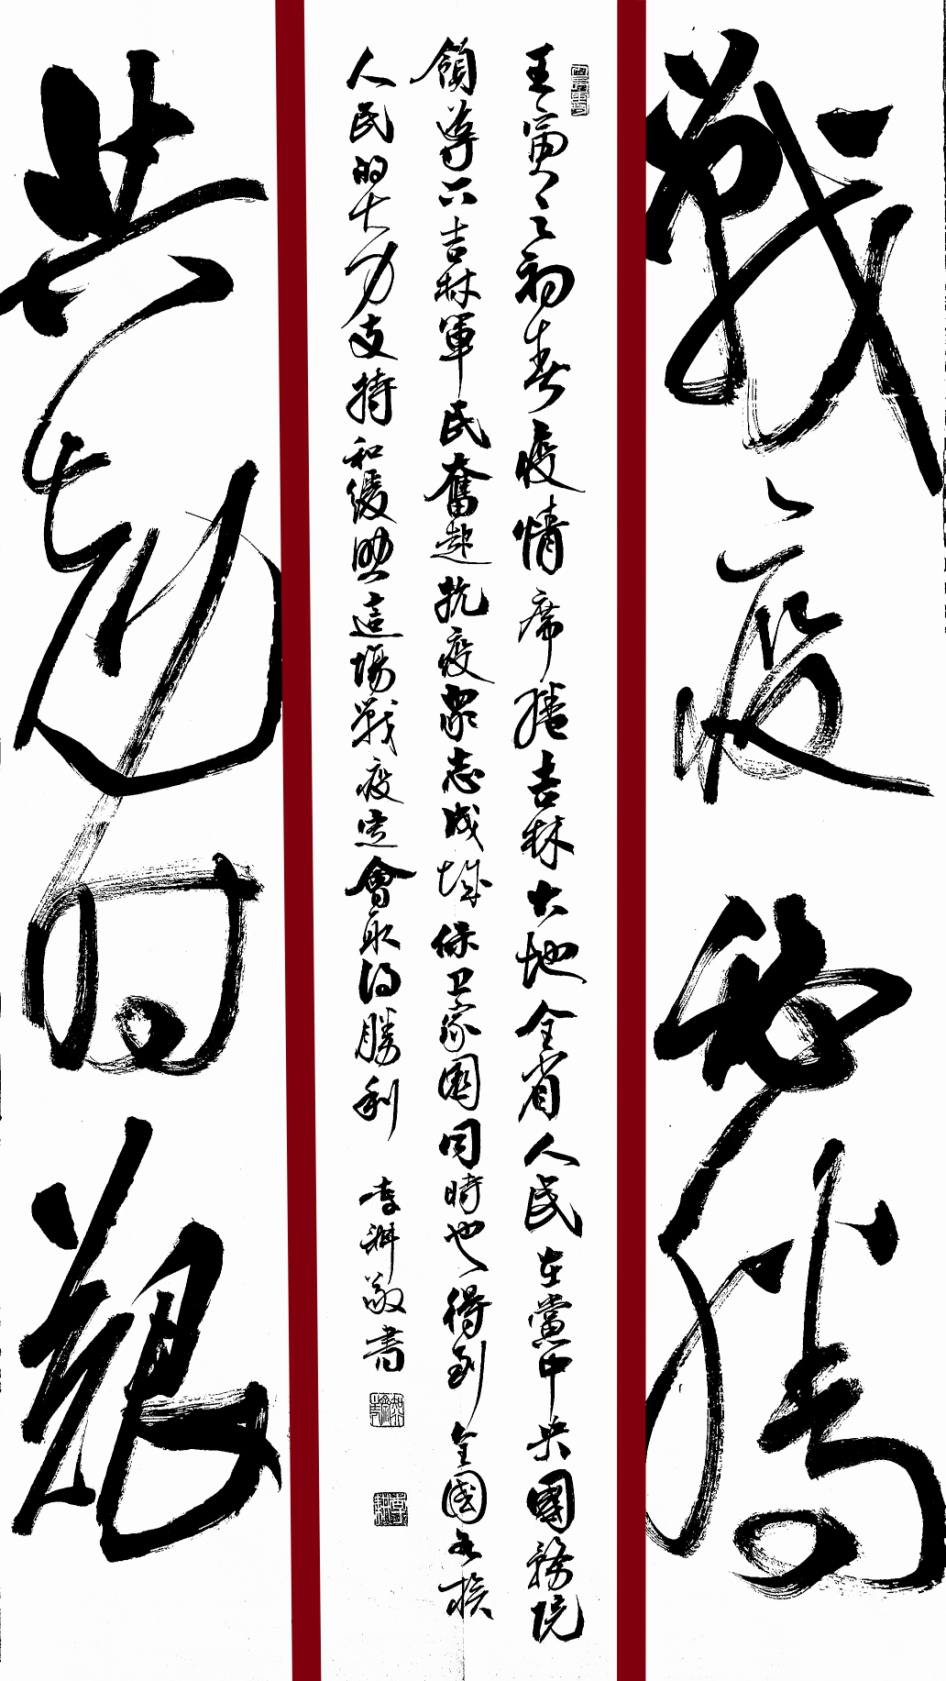 戰疫必勝
壬寅之初春疫情席捲吉林大地全省人民在黨中央國務院
領導下吉林軍民奮起抗疫眾志成城保卫家園同時也得到全國各族
人民的大力支持和援助這場戰疫定會取得勝利 李敬書
共克时艱